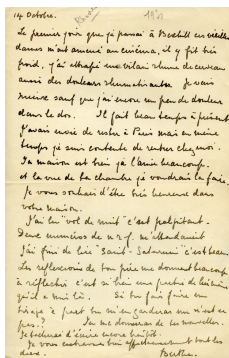 14 Octobre.
Berthe 193
Le premier jour que j'ai passé à Bexhill ces vieilles
dames m'ont amené au cinéma, il y fit très
froid. j'ai attrapé un vilain rhume de cerveau
aussi des douleurs rhumatismales. Je vais
mieux sauf que j'ai encore un peu de douleur
dans le dos. Il fait beau temps à présent
J'avais envie de rester à Paris mais en même
temps je suis contente de rentrer chez moi.
Ta maison est bien je l'aime beaucoup.
et la vue de ta chambre je voudrais la faire.
Je vous souhais d'être très heureuse dans
votre maison.
J'ai lu "vol de nuit" c'est palpitant.
Deux numéros de n r f. m'attendaient
J'ai fini de lire "Saint-Saturnin" c'est beau
Les réflexions de ton père me donnent beaucoup
à réflechir c'est si bien une prière de lumière
qu'il a mis là. Si tu fais faire un
tirage à part tu m'en garderas un n'est ce
pas? Tu me donneras de tes nouvelles.
Je tacherai d'écrire encore bientôt.
Je vous embrasse bien affectueusement tout les
deux. Berthe.